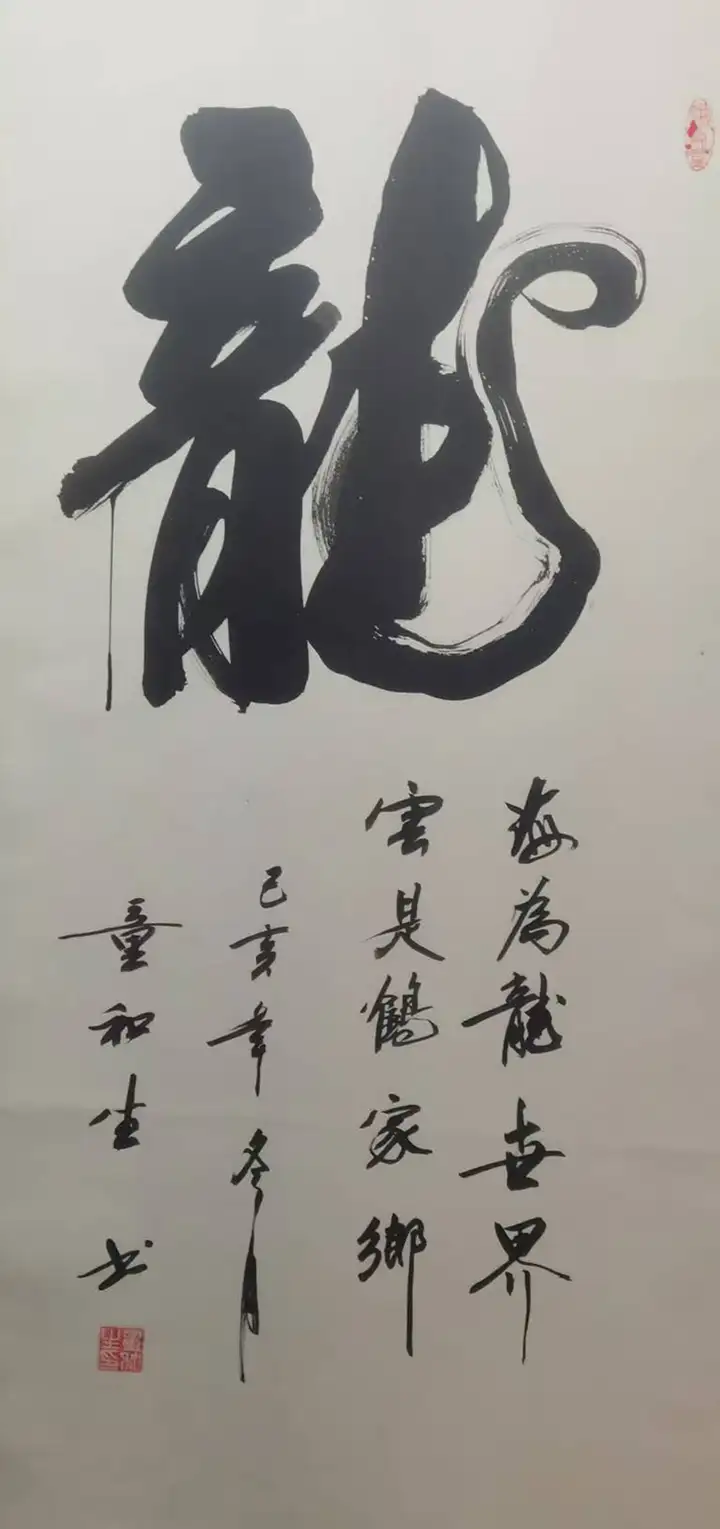 龍
海為龍世界
雲是鶴家鄉
己亥年冬月
童和生书